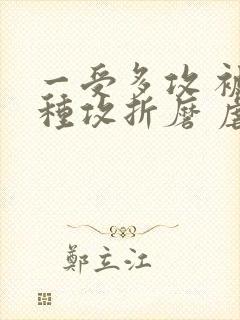 一受多攻 被
種攻折磨 虐
鄭立江